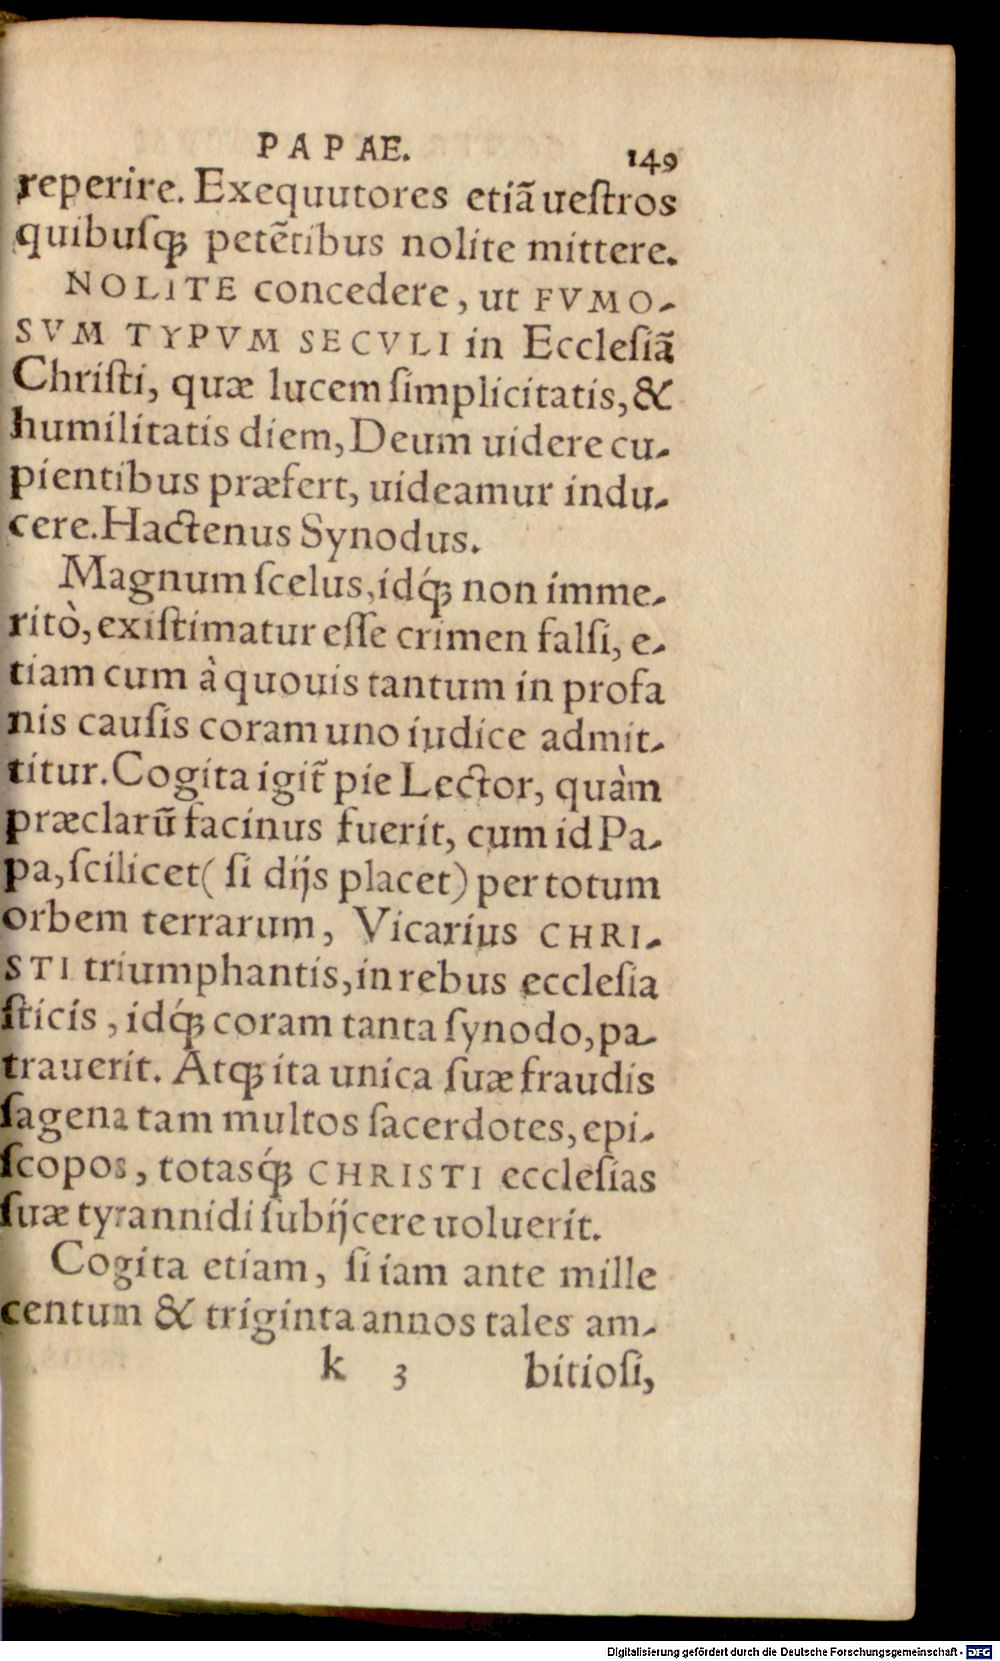 PAPAE. 149
reperire. Exequutores etiã ueſtros
quibuſq; petẽtibus nolite mittere.
NOLITE concedere, ut FVMO-
SVM TYPVM SECVLI in Eccleſiã
Chriſti, quæ lucem ſimplicitatis, &
humilitatis diem, Deum uidere cu-
pientibus præfert, uideamur indu-
cere. Hactenus Synodus.
Magnum ſcelus, idq́; non imme-
ritò, exiſtimatur eſſe crimen falſi, e-
tiam cum à quouis tantum in profa
nis cauſis coram uno iudice admit-
titur. Cogita igit̃ pie Lector, quàm
præclarũ facinus fuerit, cum id Pa-
pa, ſcilicet ( ſi dijs placet) per totum
orbem terrarum, Vicarius CHRI-
STI triumphantis, in rebus eccleſia
ſticis, idq́; coram tanta ſynodo, pa-
trauerit. Atq; ita unica ſuæ fraudis
ſagena tam multos ſacerdotes, epi-
ſcopos, totasq́; CHRISTI eccleſias
ſuæ tyrannidi ſubijcere uoluerit.
Cogita etiam, ſi iam ante mille
centum & triginta annos tales am-
k 3 bitioſi,
Digitalisierung gefördert durch die Deutsche Forschungsgemeinschaft - DFG